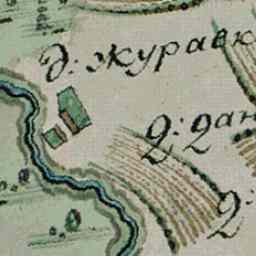 д: журавк
д: дан
д: